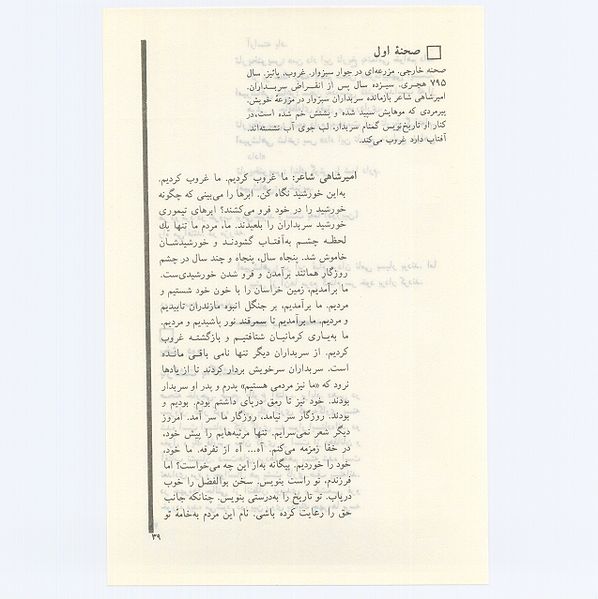 صحنهٔ اول
صحنه خارجی. مزرعه‌ای در جوار سبزوار. غروب. پائیز. سال
۷۹۵ هجری. سیزده سال پس از انقراض سربداران.
امیرشاهی شاعر بازمانده سربداران سبزوار در مزرعهٔ خویش.
پیرمردی که موهایش سپید شده و پشتش خم شده است، در
کنار او تاریخ‌نویس گمنام سربدار. لب جوی آب نشسته‌اند.
آفتاب دارد غروب می‌کند.
امیرشاهی شاعر: ما غروب کردیم. ما غروب کردیم.
به‌این خورشید نگاه کن. ابرها را می‌بینی که چگونه
خورشید را در خود فرو می‌کشند؟ ابرهای تیموری
خورشید سربداران را بلعیدند. ما، مردم ما تنها یك
لحظه چشم به‌آفتاب گشودند و خورشیدشان
خاموش شد. پنجاه سال، پنجاه و چند سال در چشم
روزگار همانند برآمدن و فرو شدن خورشیدی‌ست.
ما برآمدیم، زمین خراسان را با خون خود شستیم و
مردیم. ما برآمدیم، بر جنگل انبوه مازندران تابیدیم
و مردیم. ما برآمدیم تا سمرقند نور باشیدیم و مردیم.
ما به‌یاری کرمانیان شتافتیم و بازگشته غروب
کردیم. از سربداران دیگر تنها نامی باقی مانده
است. سربداران سرخویش بردار کردند تا از یادها
نرود که «ما نیز مردمی هستیم» پدرم و پدر او سربدار
بودند. خود نیز تا رمق درپای داشتم بودم. بودیم و
بودند. روزگار سر نیامد، روزگار ما سر آمد. امروز
دیگر شعر نمی‌سرایم. تنها مرثیه‌هایم را پیش خود،
در خفا زمزمه می‌کنم. آه... آه از تفرقه. ما خود،
خود را خوردیم. بیگانه به‌از این چه می‌خواست؟ اما
فرزندم، تو راست بنویس. سخن بوالفضل را خوب
دریاب. تو تاریخ را به‌درستی بنویس. چنانکه جانب
حق را رعایت کرده باشی. نام این مردم به‌خامهٔ تو
۳۹